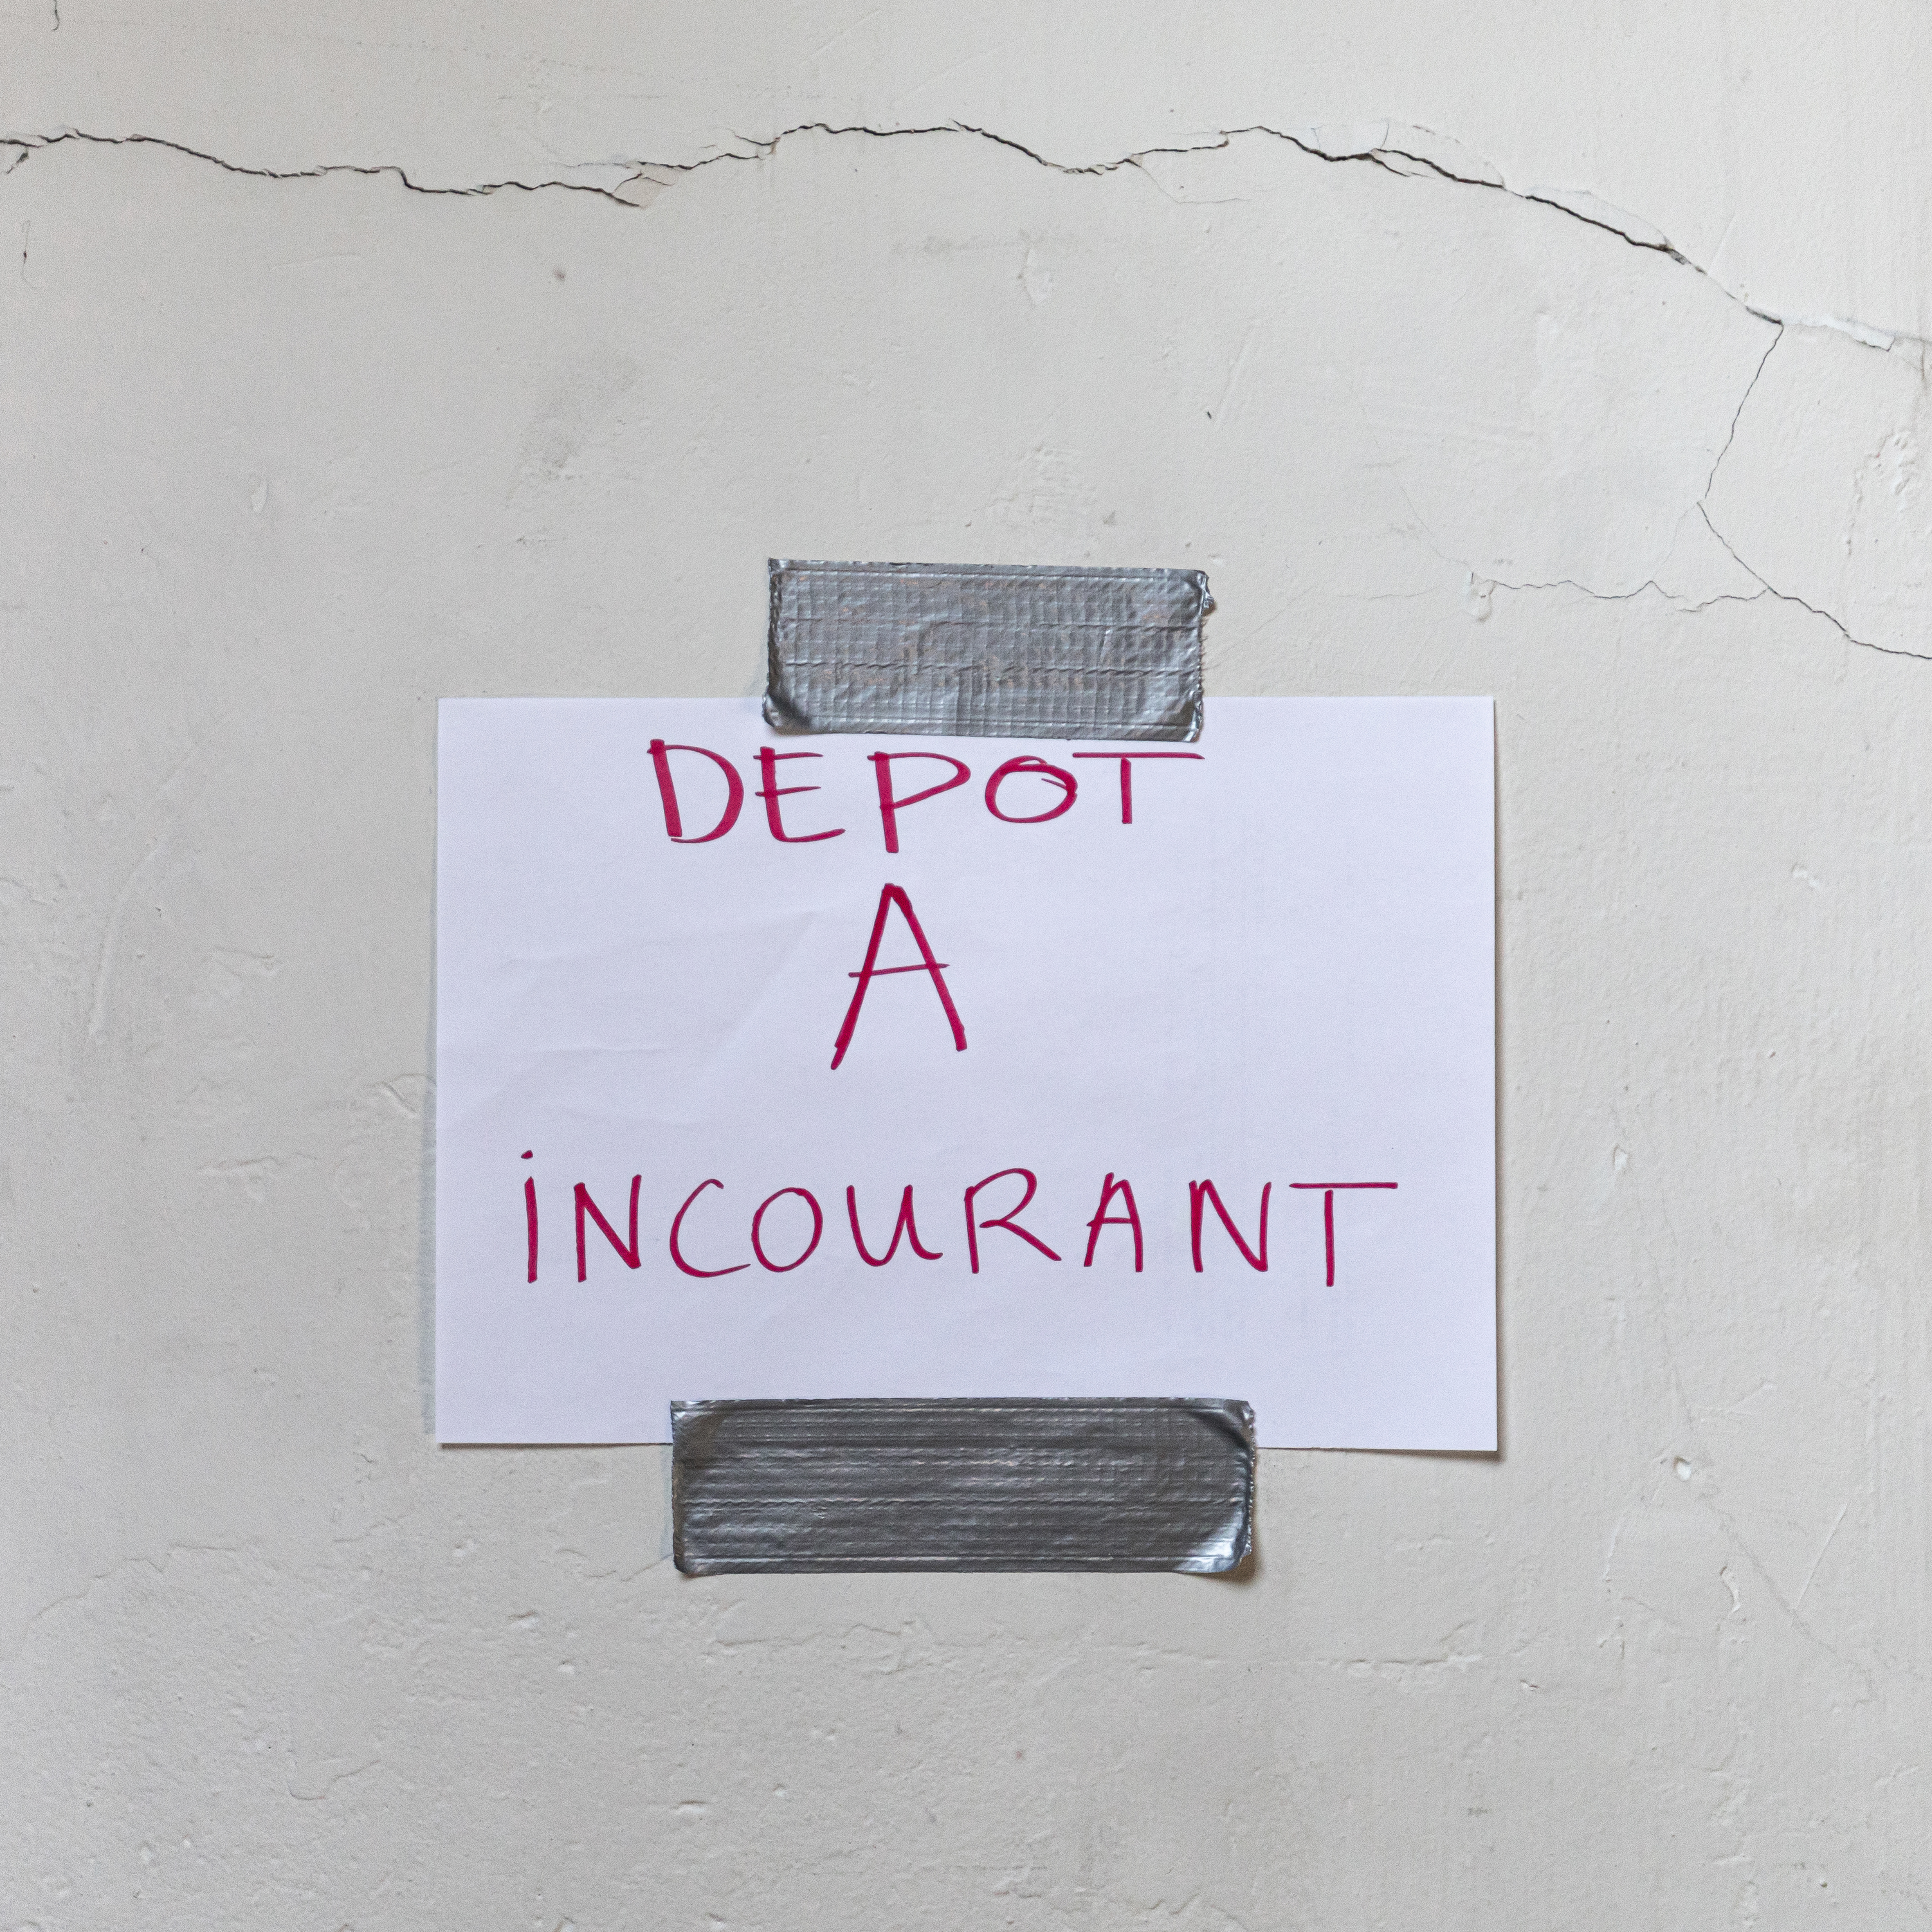 DEPOT
A
INCOURANT